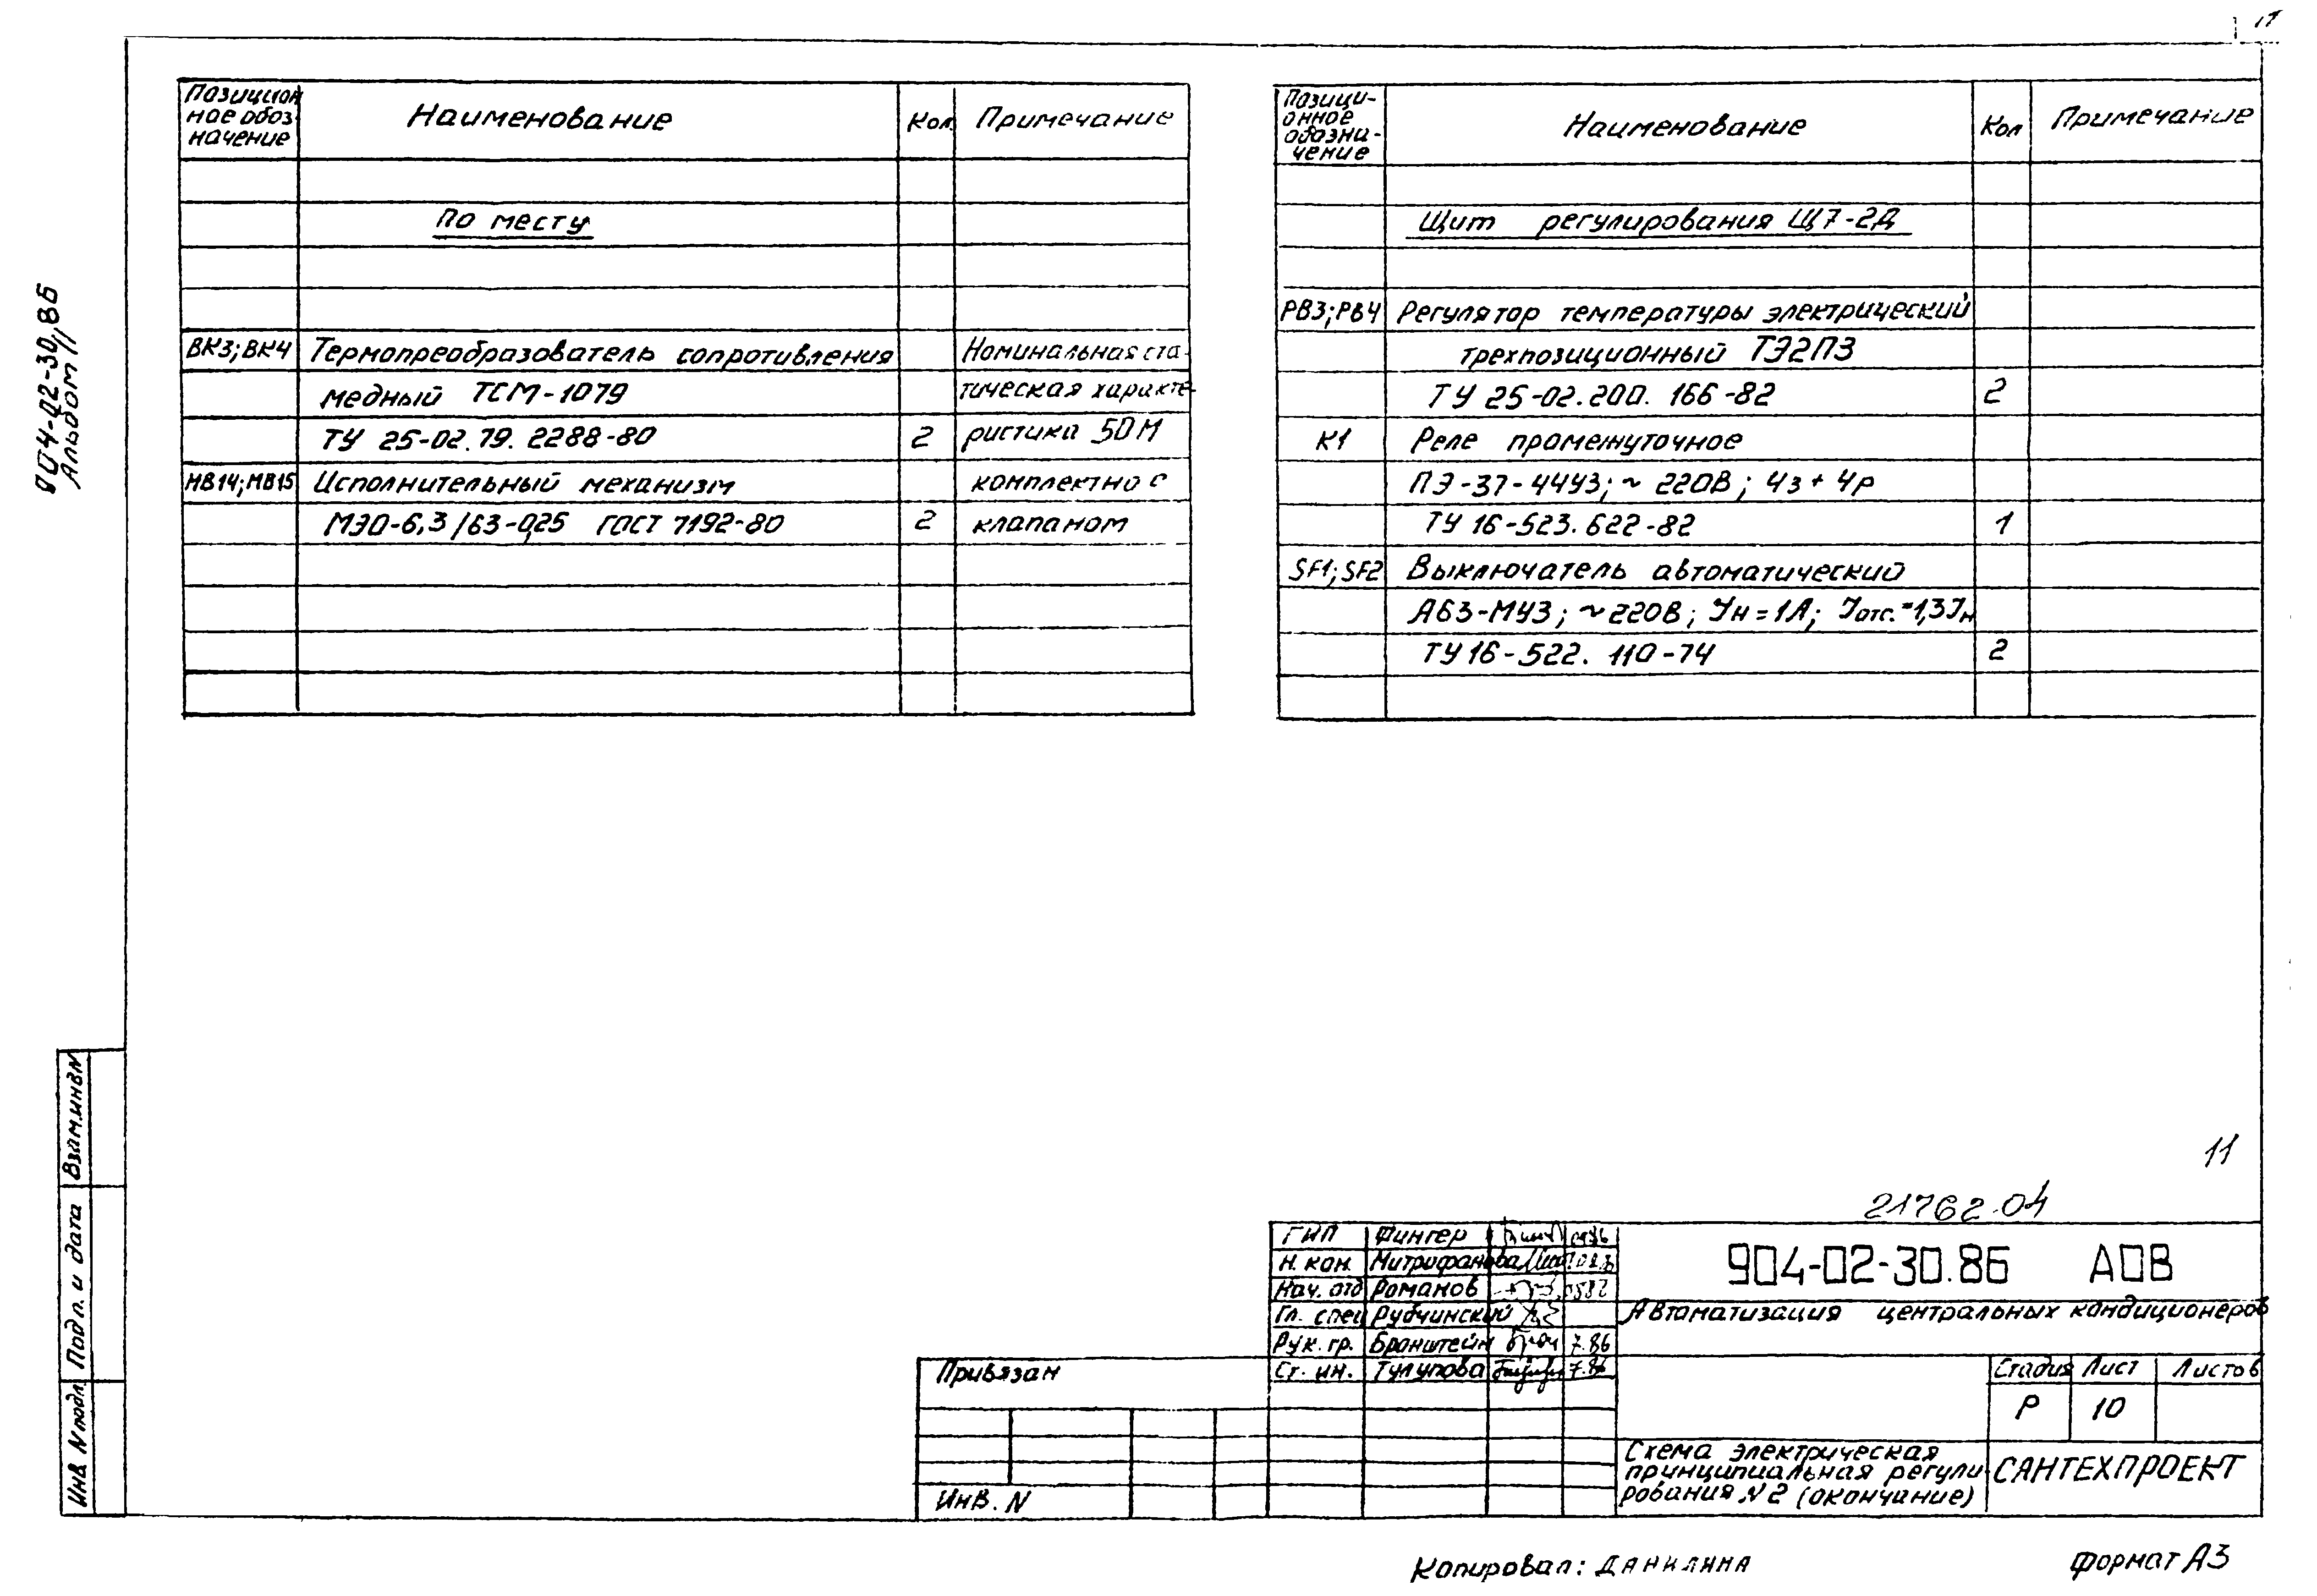 11
904-02-30.86
Альбом II
Позицион
ное обоз-
начение
Наименование
Кол.
Примечание
По месту
ВК3; ВК4 Термопреобразователь сопротивления Номинальная ста-
медный ТСМ-1079 тическая характе-
ТУ 25-02.79.2288-80 2 ристика 50М
МВ14; МВ15 Исполнительный механизм комплектно с
МЭО-6,3/63-0,25 ГОСТ 7192-80 2 клапаном
Позици-
онное
обозна-
чение
Наименование
Кол
Примечание
Щит регулирования Щ7-2Д
РВ3; РВ4 Регулятор температуры электрический
трехпозиционный ТЭ2П3
ТУ 25-02.200.166-82 2
К1 Реле промежуточное
ПЭ-37-44У3; ~ 220В; 4з + 4р
ТУ 16-523.622-82 1
SF1; SF2 Выключатель автоматический
А63-МУ3; ~220В; Iн = 1А; Iотс. = 1,3Iн
ТУ 16-522.110-74 2
Взам.инв.N
Подп. и дата
Инв. N подл.
11
21762-04
ГИП Фингер
Н. кон. Митрифанова
Нач. отд Романов
Гл. спец Рубчинский
Рук. гр. Бронштейн 7.86
Ст. ин. Тулупова 7.86
904-02-30.86 АОВ
Автоматизация центральных кондиционеров
Привязан
Инв. N
Стадия Лист Листов
Р 10
Схема электрическая
принципиальная регули-
рования N 2 (окончание)
САНТЕХПРОЕКТ
Копировал: Данилина
Формат А3